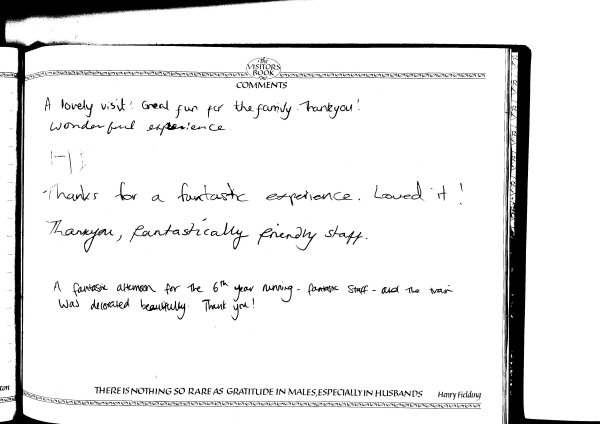 the
VISITORS
BOOK
COMMENTS
A lovely visit! Great fun for the family. Thankyou!
Wonderful experience.
Thanks for a fantastic experience. Loved it!
Thankyou, fantastically friendly staff.
A fantastic afternoon for the 6th year running - fantastic staff - and the train
was decorated beautifully. Thank you!
ton
THERE IS NOTHING SO RARE AS GRATITUDE IN MALES, ESPECIALLY IN HUSBANDS Henry Fielding